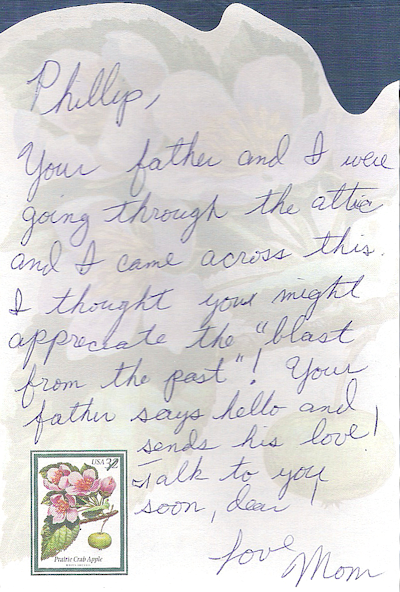 Phillip,
Your father and I were
going through the attic
and I came across this.
I thought you might
appreciate the "blast
from the past"! Your
father says hello and
sends his love!
Talk to you
soon, dear!
Love
Mom
USA 32
Prairie Crab Apple